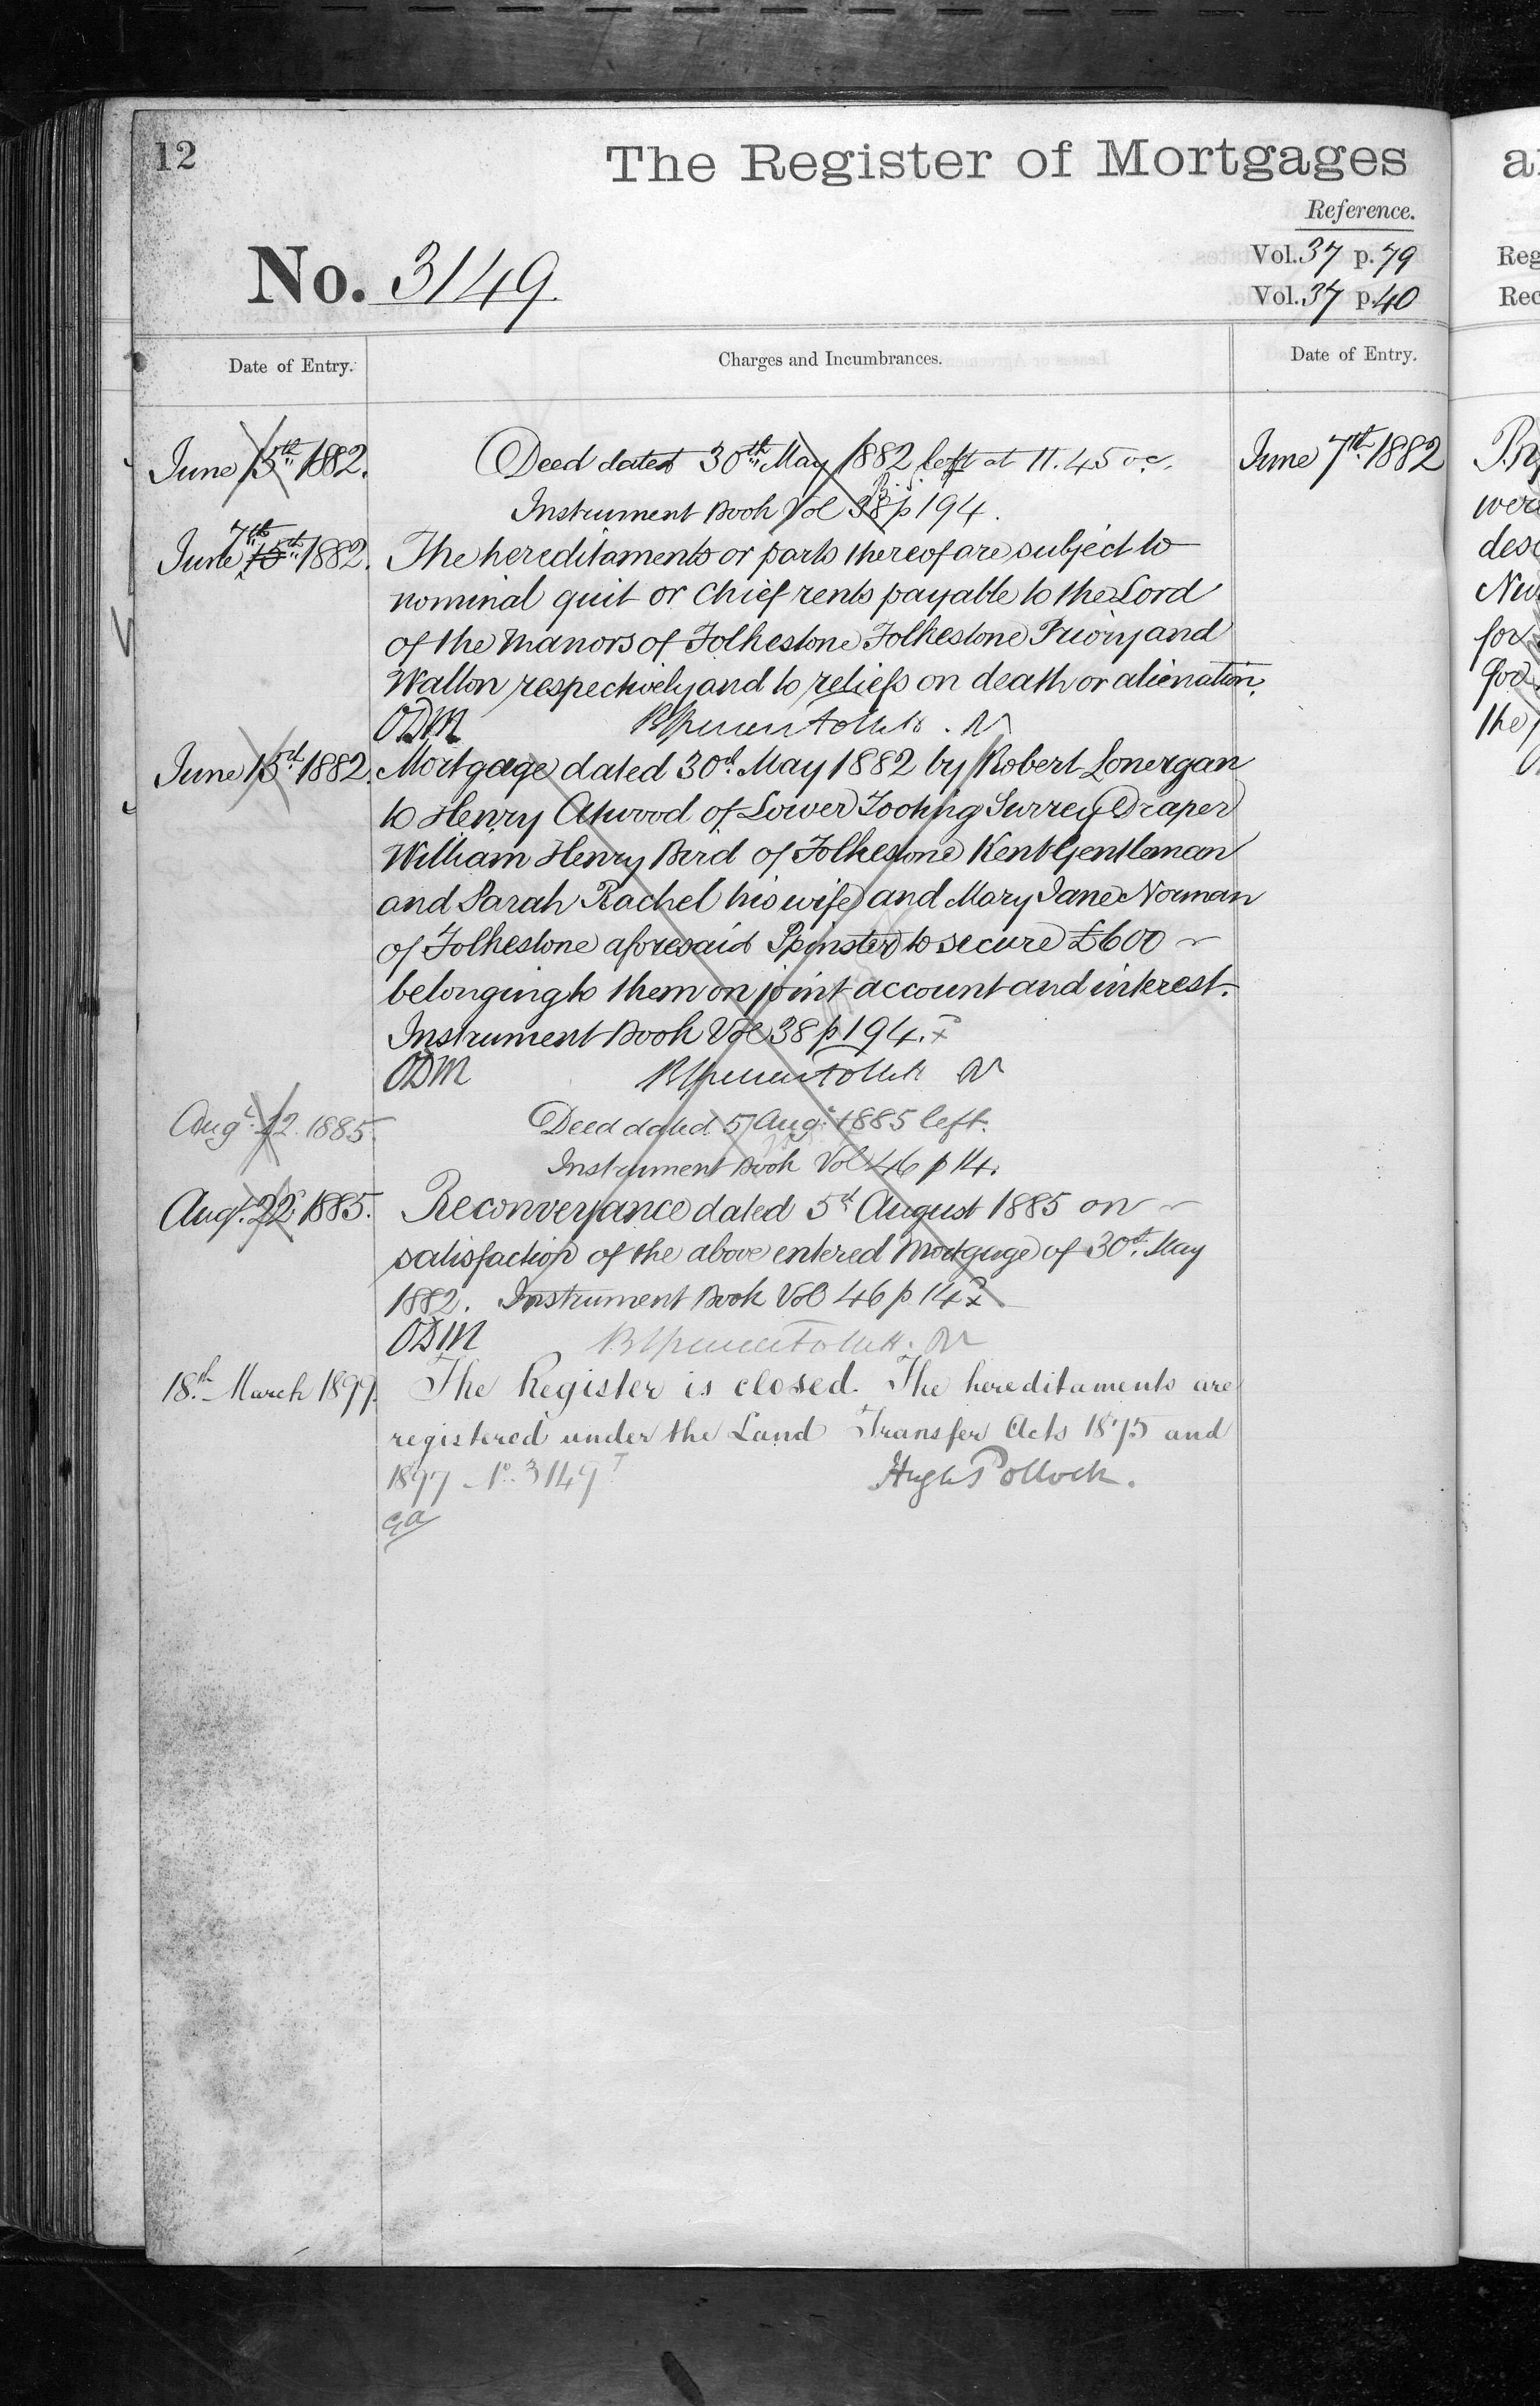 12
The Register of Mortgages
Reference.
No. 3149.
Vol. 37 p. 79
Vol. 37 p. 40
Reg
Rec
Date of Entry.
Charges and Incumbrances.
Date of Entry.
June 15th 1882.
Deed dated 30th May 1882 left at 11.45 o.c.
June 7th 1882
Instrument Book Vol 38 p 194.
7th
June 15th 1882.
The hereditaments or parts thereof are subject to
nominal quit or chief rents payable to the Lord
of the Manors of Folkestone Folkestone Priory and
Walton respectively and to reliefs on death or alienation.
ODM
June 15th 1882.
Mortgage dated 30th May 1882 by Robert Lonergan
to Henry Atwood of Lower Tooting Surrey Draper
William Henry Bird of Folkestone Kent Gentleman
and Sarah Rachel his wife and Mary Jane Norman
of Folkestone aforesaid Spinster to secure £600
belonging to them on joint account and interest.
Instrument Book Vol 38 p 194.
ODM
Augt. 22 1885.
Deed dated 5 Aug. 1885 left.
Instrument Book Vol 46 p 14.
Augt. 22 1885.
Reconveyance dated 5th August 1885 on
satisfaction of the above entered Mortgage of 30th May
1882. Instrument Book Vol 46 p 14
ODM
18th March 1899.
The Register is closed. The hereditaments are
registered under the Land Transfer Acts 1875 and
1897 No. 3149
Hugh Pollock.